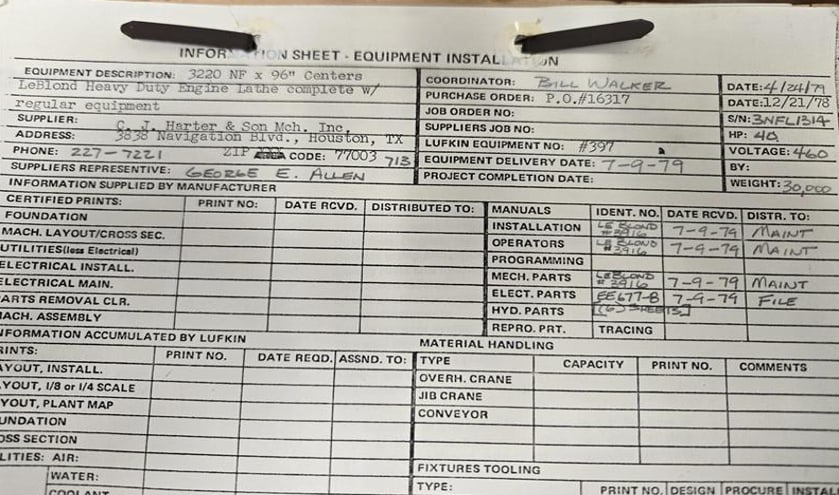 INFORMATION SHEET - EQUIPMENT INSTALLATION
EQUIPMENT DESCRIPTION: 3220 NF x 96" Centers
LeBlond Heavy Duty Engine Lathe complete w/
regular equipment
SUPPLIER: C. J. Harter & Son Mch. Inc.
ADDRESS: 3838 Navigation Blvd., Houston, TX
PHONE: 227-7221 ZIP CODE: 77003 713
SUPPLIERS REPRESENTATIVE: GEORGE E. ALLEN
COORDINATOR: BILL WALKER DATE: 4/24/79
PURCHASE ORDER: P.O.#16317 DATE: 12/21/78
JOB ORDER NO: S/N: 3NFL1314
SUPPLIERS JOB NO: HP: 40
LUFKIN EQUIPMENT NO: #397 VOLTAGE: 460
EQUIPMENT DELIVERY DATE: 7-9-79 BY:
PROJECT COMPLETION DATE: WEIGHT: 30,000
INFORMATION SUPPLIED BY MANUFACTURER
CERTIFIED PRINTS: PRINT NO: DATE RCVD. DISTRIBUTED TO:
FOUNDATION
MACH. LAYOUT/CROSS SEC.
UTILITIES (less Electrical)
ELECTRICAL INSTALL.
ELECTRICAL MAIN.
PARTS REMOVAL CLR.
MACH. ASSEMBLY
MANUALS IDENT. NO. DATE RCVD. DISTR. TO:
INSTALLATION LE BLOND #3916 7-9-79 MAINT
OPERATORS LE BLOND #3916 7-9-79 MAINT
PROGRAMMING
MECH. PARTS LEBLOND #3916 7-9-79 MAINT
ELECT. PARTS EE677-B 7-9-79 FILE
HYD. PARTS (6) SHEETS
REPRO. PRT. TRACING
INFORMATION ACCUMULATED BY LUFKIN
PRINTS: PRINT NO. DATE REQD. ASSND. TO:
LAYOUT, INSTALL.
LAYOUT, 1/8 or 1/4 SCALE
LAYOUT, PLANT MAP
FOUNDATION
CROSS SECTION
UTILITIES: AIR:
WATER:
COOLANT
MATERIAL HANDLING
TYPE CAPACITY PRINT NO. COMMENTS
OVERH. CRANE
JIB CRANE
CONVEYOR
FIXTURES TOOLING
TYPE: PRINT NO. DESIGN PROCURE INSTAL